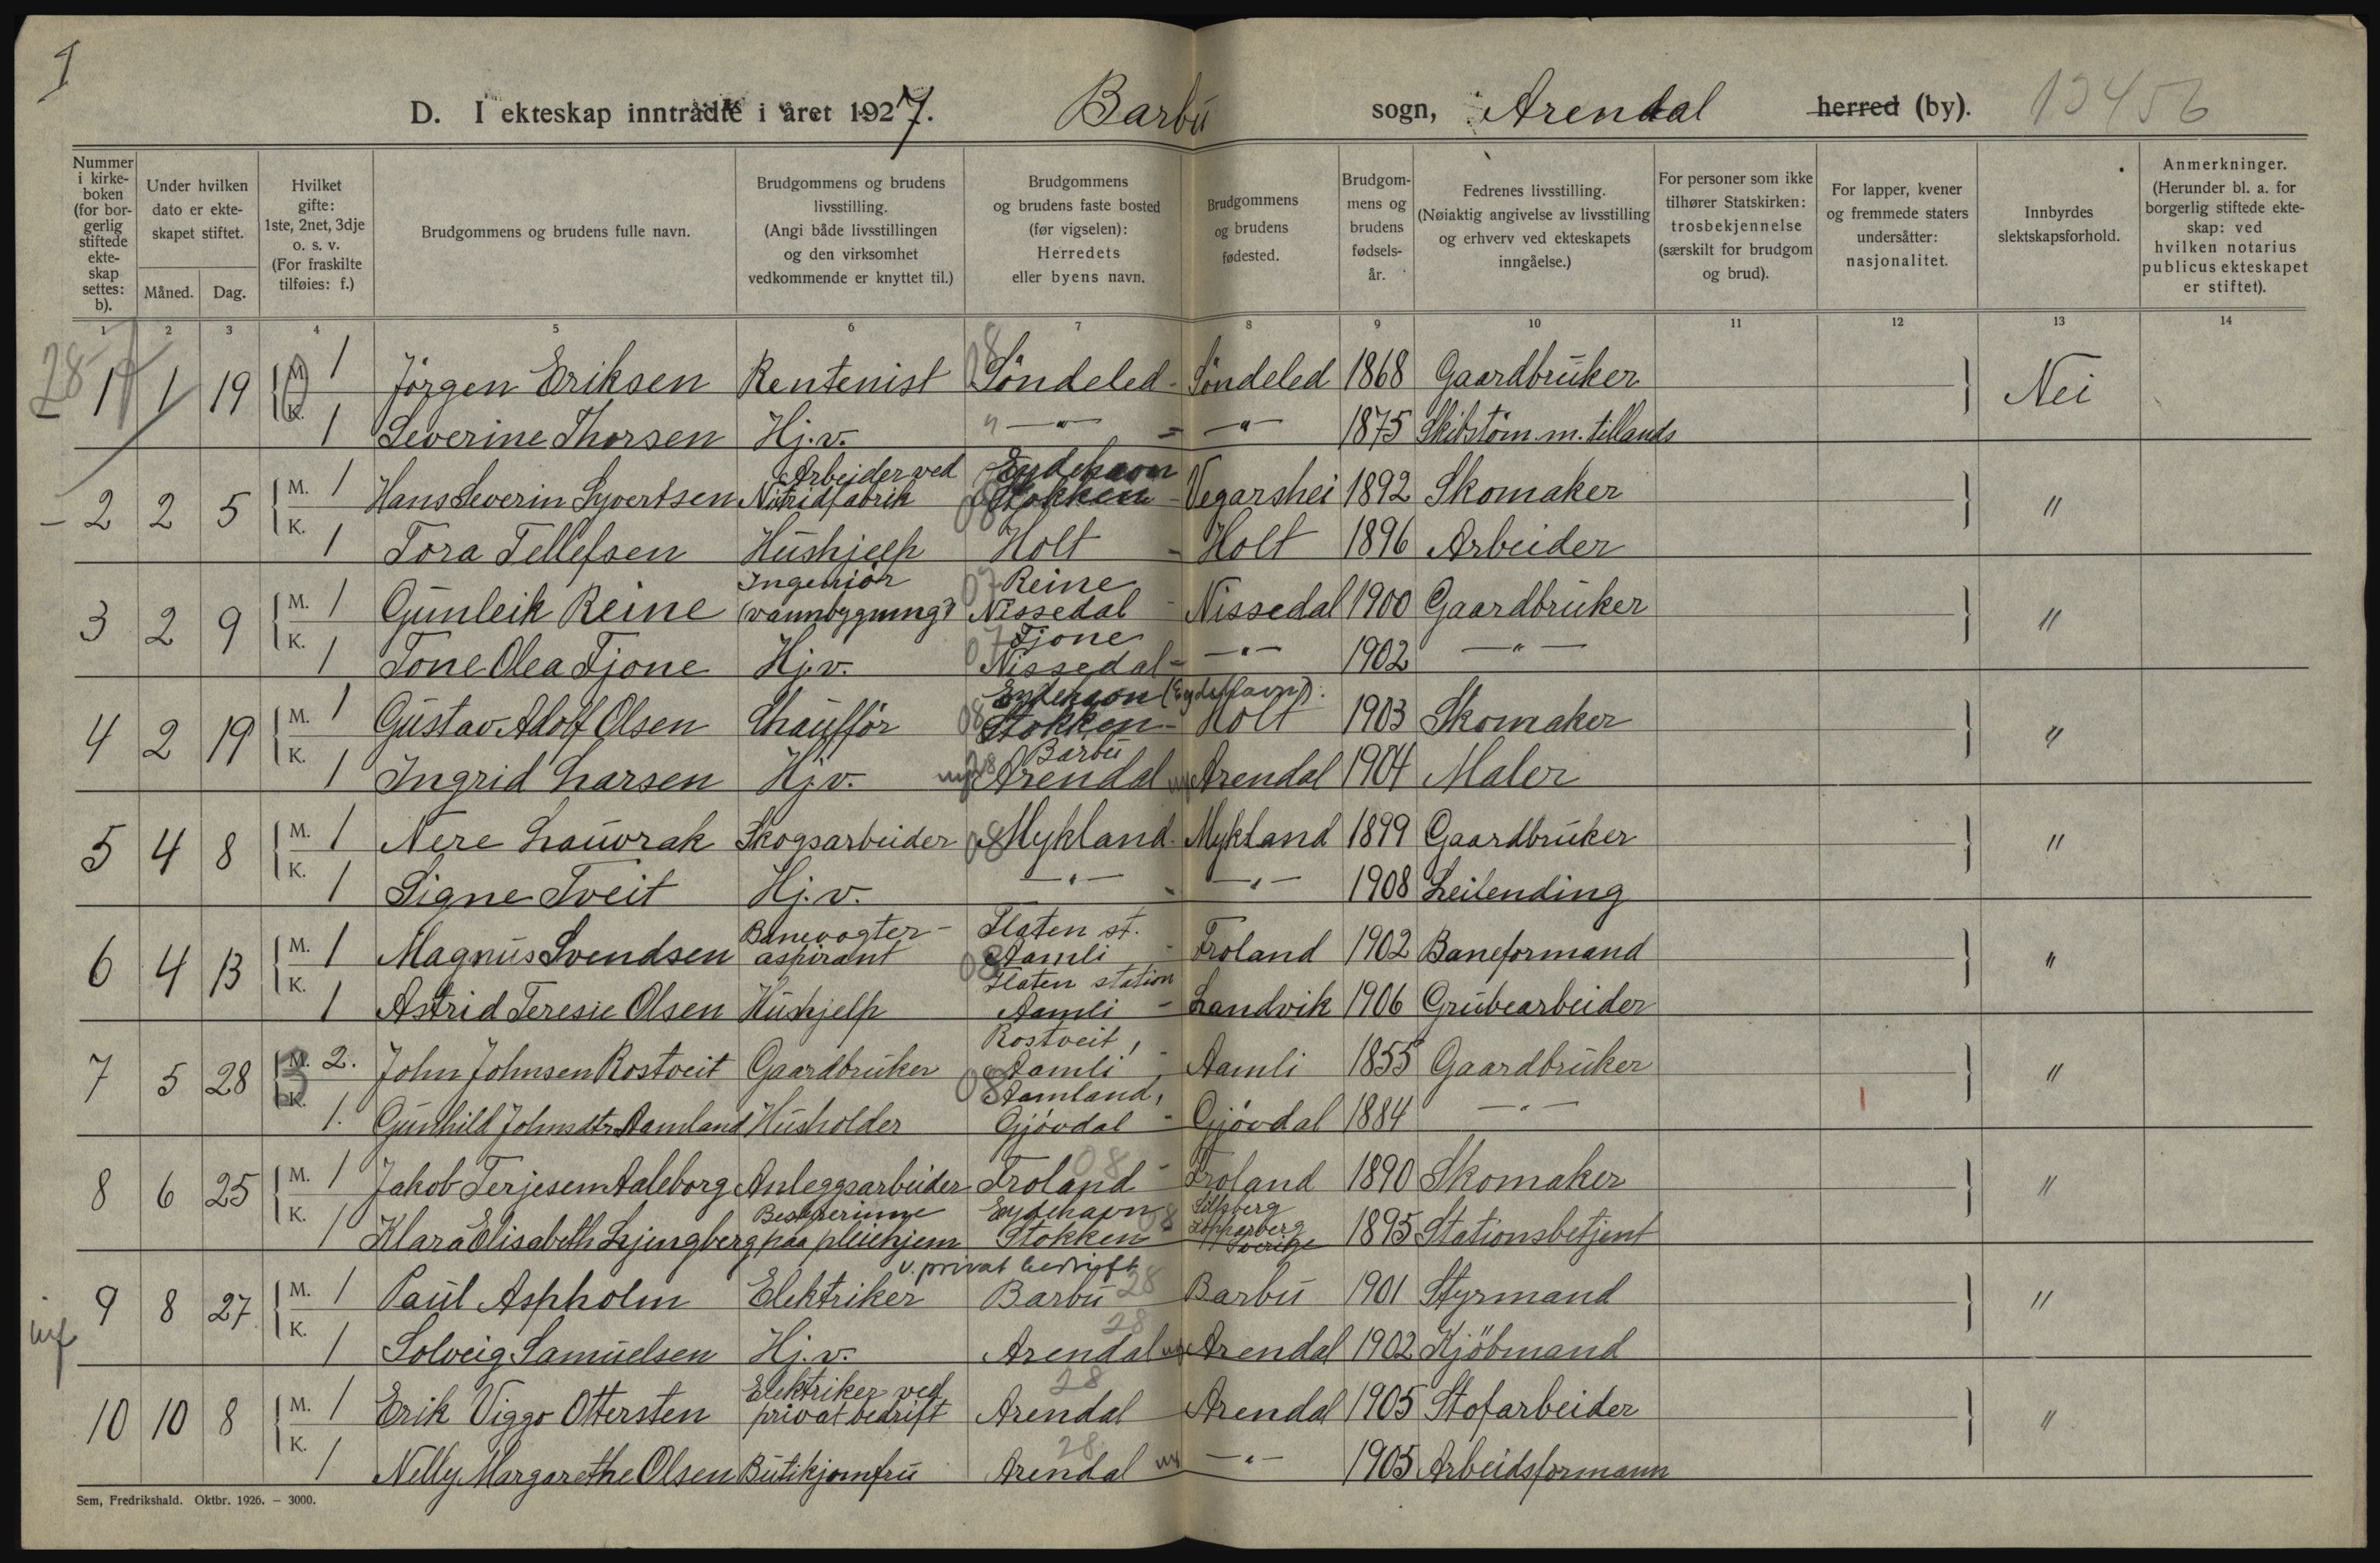 1
D. I ekteskap inntrådte i året 1927. Barbu sogn, Arendal herred (by). 13456
Nummer i kirkeboken (for borgerlig stiftede ekteskap settes: b).
Under hvilken dato er ekteskapet stiftet.
Måned. Dag.
Hvilket gifte: 1ste, 2net, 3dje o. s. v. (For fraskilte tilføies: f.)
Brudgommens og brudens fulle navn.
Brudgommens og brudens livsstilling. (Angi både livsstillingen og den virksomhet vedkommende er knyttet til.)
Brudgommens og brudens faste bosted (før vigselen): Herredets eller byens navn.
Brudgommens og brudens fødested.
Brudgommens og brudens fødselsår.
Fedrenes livsstilling. (Nøiaktig angivelse av livsstilling og erhverv ved ekteskapets inngåelse.)
For personer som ikke tilhører Statskirken: trosbekjennelse (særskilt for brudgom og brud).
For lapper, kvener og fremmede staters undersåtter: nasjonalitet.
Innbyrdes slektskapsforhold.
Anmerkninger. (Herunder bl. a. for borgerlig stiftede ekteskap: ved hvilken notarius publicus ekteskapet er stiftet).
1 2 3 4 5 6 7 8 9 10 11 12 13 14
28 1 1 19 M. 1 Jörgen Eriksen Rentenist 08 Söndeled - Söndeled 1868 Gaardbruker Nei
K. 1 Severine Thorsen Hj.v. " - " - 1875 Skibstøm.m. tillands
Arbeider ved Eydehavn
- 2 2 5 M. 1 Hans Severin Syvertsen Nitridfabrik 08 Stokken - Vegarshei 1892 Skomaker "
K. 1 Tora Tellefsen Hushjelp Holt - Holt 1896 Arbeider
Ingeniör 07 Reine
3 2 9 M. 1 Gunleik Reine (vannbygning) Nissedal - Nissedal 1900 Gaardbruker "
07 Fjone
K. 1 Tone Olea Fjone Hj.v. Nissedal - - " - 1902 - " -
Eydehavn (Eydehavn).
4 2 19 M. 1 Gustav Adolf Olsen Chauffør 08 Stokken - Holt 1903 Skomaker "
Barbu
K. 1 Ingrid Larsen Hj.v. 28 Arendal Arendal 1904 Maler
5 4 8 M. 1 Nere Lauvrak Skogsarbeider 08 Mykland - Mykland 1899 Gaardbruker "
K. 1 Signe Tveit Hj.v. - " - - " - 1908 Leilending
Banevogter- Flaten st.
6 4 13 M. 1 Magnus Svendsen aspirant 08 Aamli - Froland 1902 Baneformand "
Flaten station
K. 1 Astrid Teresie Olsen Hushjelp Aamli - Landvik 1906 Grubearbeider
Rostveit,
7 5 28 M. 2. John Johnsen Rostveit Gaardbruker Aamli - Aamli 1855 Gaardbruker "
08 Aamland,
K. 1. Gunhild Johnsdtr. Aamland Husholder Gjövdal - Gjövdal 1884 - " -
8 6 25 M. 1 Jakob Terjesen Aaleborg Anleggsarbeider Froland 08 - Froland 1890 Skomaker "
Bestyrerinne Eydehavn 08 Silfberg
Kopparberg
K. 1 Klara Elisabeth Ljungberg paa pleiehjem Stokken - Sverige 1895 Stationsbetjent
v. privat bedrift
9 8 27 M. 1 Paul Aspholm Elektriker Barbu 28 Barbu 1901 Styrmand "
28
K. 1 Solveig Samuelsen Hj.v. Arendal Arendal 1902 Kjöbmand
Elektriker ved 28
10 10 8 M. 1 Erik Viggo Ottersten privat bedrift Arendal Arendal 1905 Stofarbeider "
28
K. 1 Nelly Margarethe Olsen Butikjomfru Arendal - " - 1905 Arbeidsformann
Sem, Fredrikshald. Oktbr. 1926. – 3000.